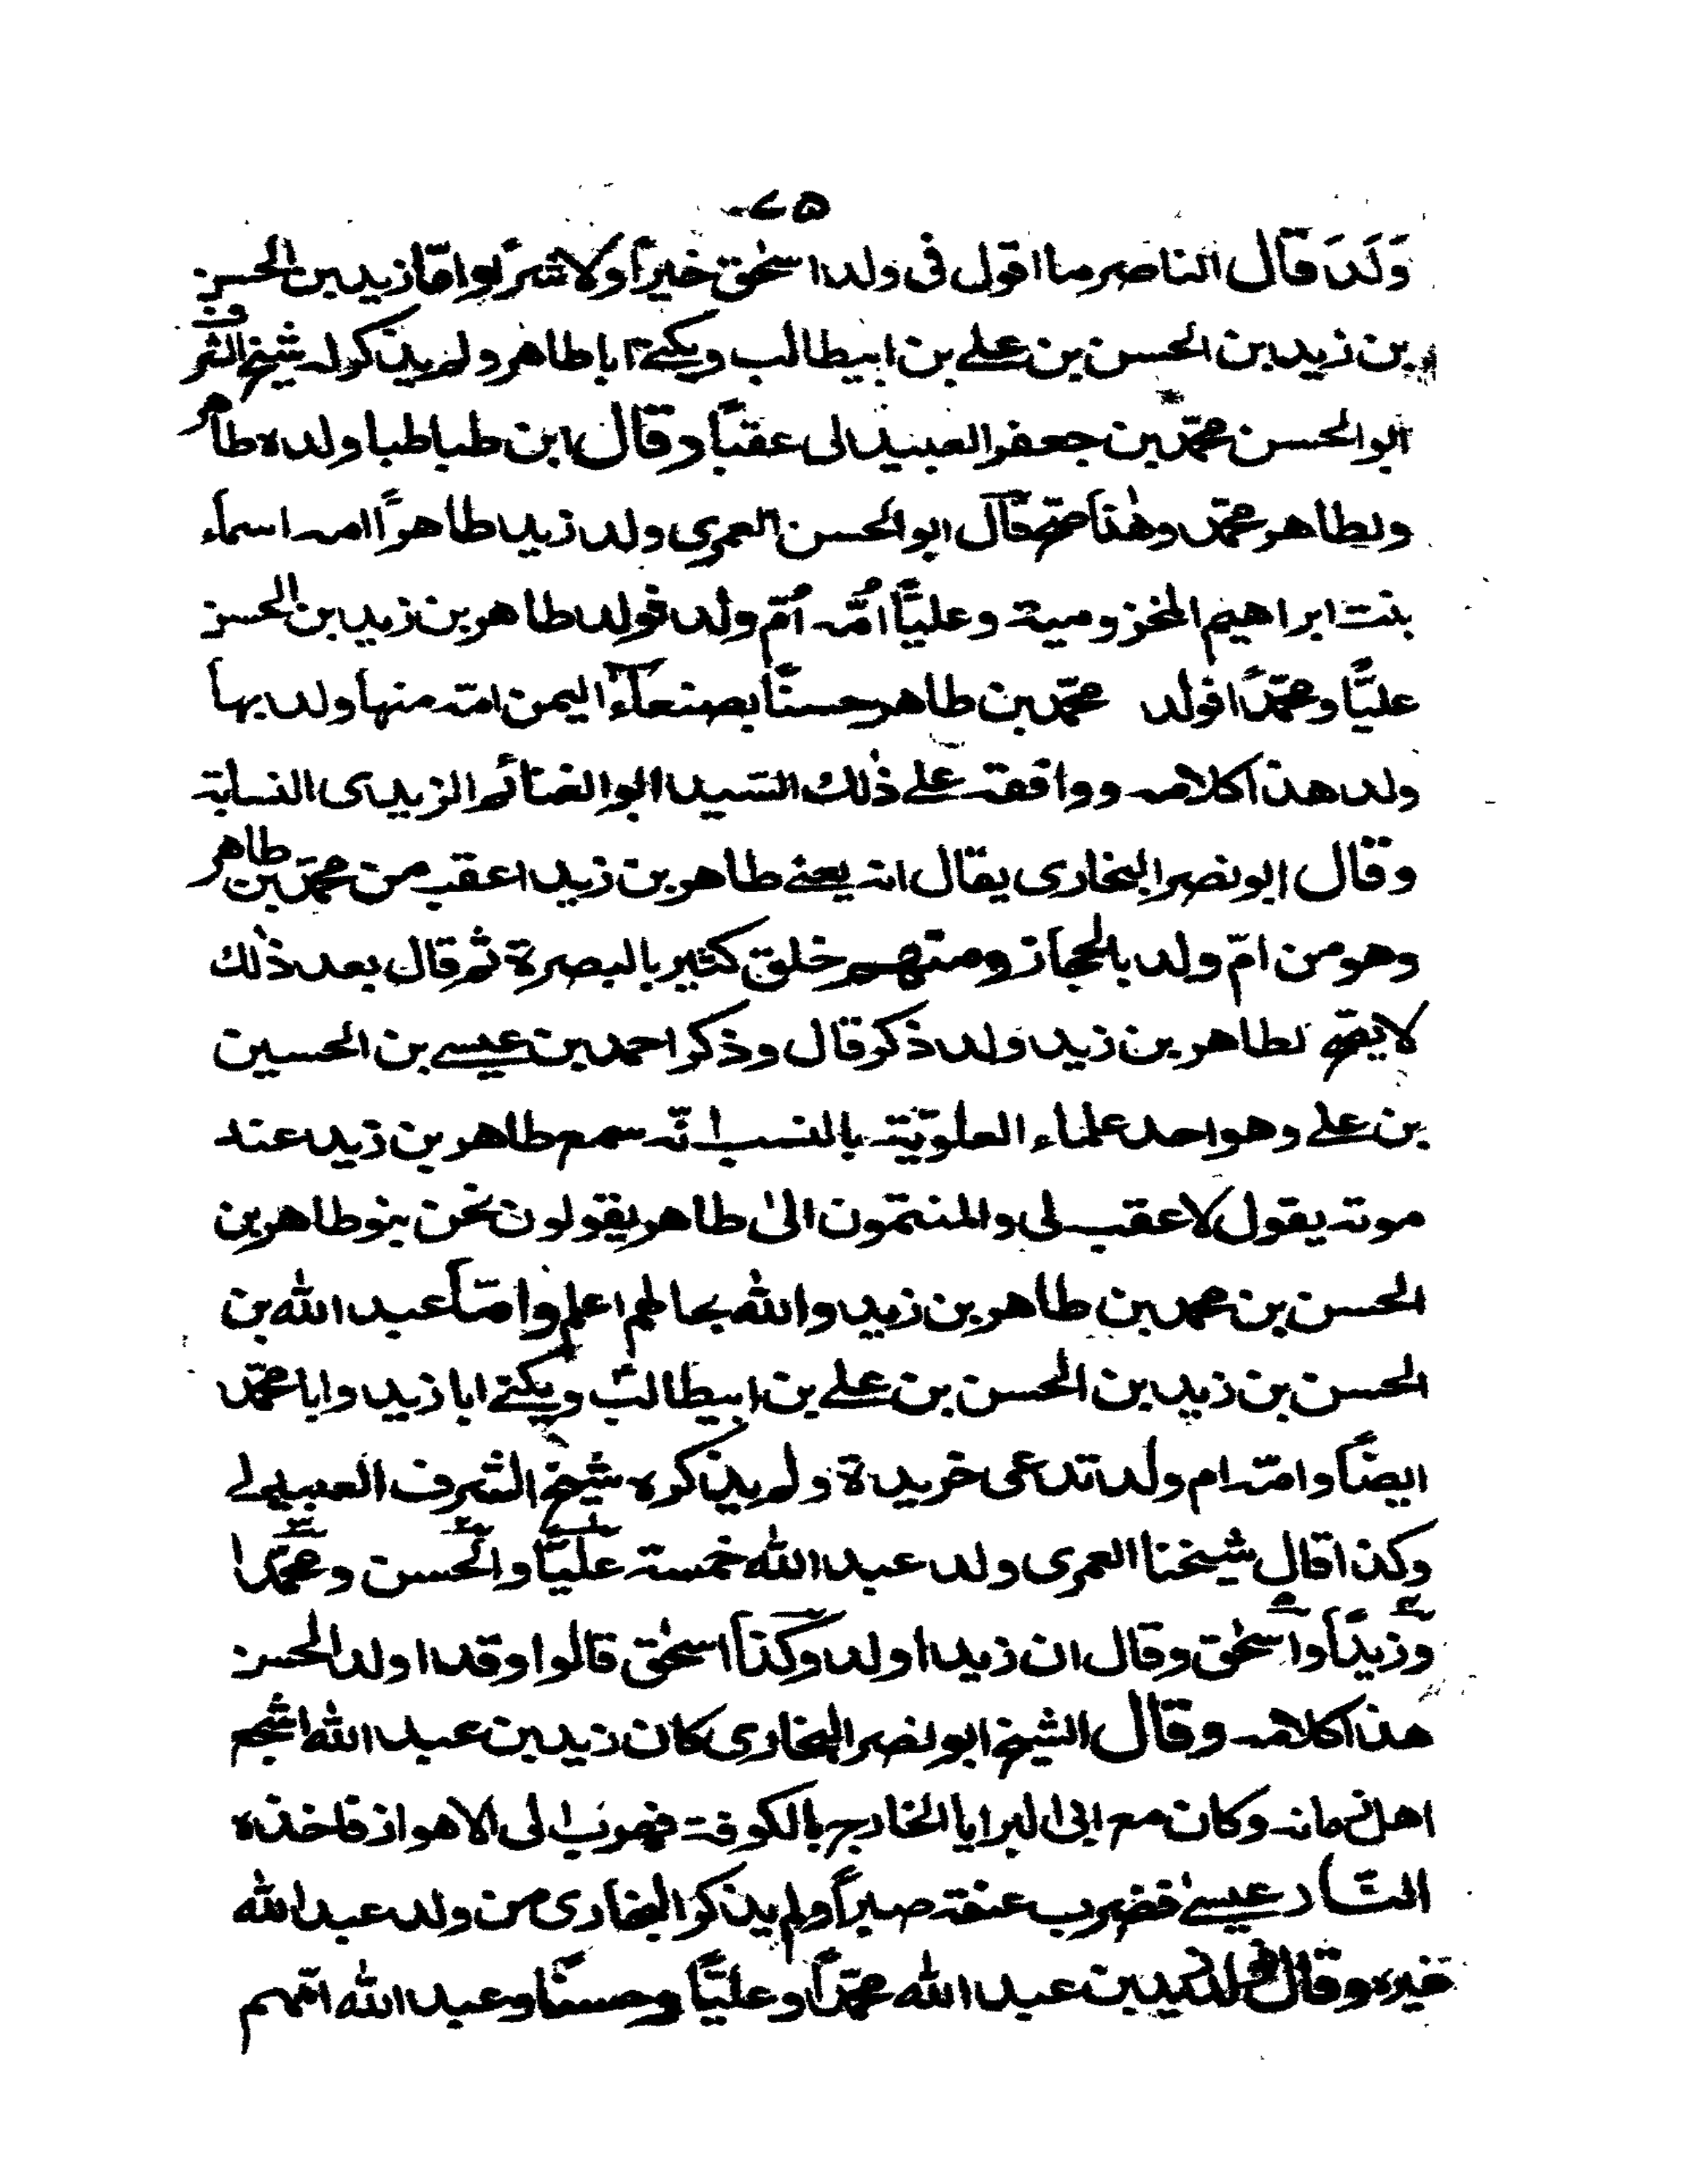 ٧٥
وَلَدَ قال الناصر ما اقول فى ولد اسحٰق خيراً ولا شراً واما زيد بن الحسن
بن زيد بن الحسن بن علے بن ابيطالب ويكنے ابا طاهر ولم يذكر له شيخ الشرف
ابو الحسن محمّد بن جعفر العبيدلى عقبًا وقال ابن طباطبا ولده طاهر
ولطاهر محمّد وهٰذا صح قال ابو الحسن العمرى ولد زيد طاهرًا امه اسماء
بنت ابراهيم المخزومية وعليًّا اُمّه اُمّ ولد فولد طاهر بن زيد بن الحسن
عليًّا ومحمّدًا فولد محمّد بن طاهر حسنًا بصنعاء اليمن امّه منها ولد بها
ولد هذا كلامه ووافقه علے ذٰلك السّيد ابو الغنائم الزيدى النسابة
وقال ابو نصر البخارى يقال انه يعنے طاهر بن زيد اعقب من محمّد بن طاهر
وهو من امّ ولد بالحجاز ومنهم خلق كثير بالبصرة ثم قال بعد ذٰلك
لا يصحّ لطاهر بن زيد ولد ذكر قال وذكر احمد بن عيسے بن الحسين
بن علے وهو احد علماء العلويّة بالنسب انّه سمع طاهر بن زيد عند
موته يقول لا عقب لى والمنتمون الىٰ طاهر يقولون نحن بنو طاهر بن
الحسن بن محمد بن طاهر بن زيد والله بحالهم اعلم وامّا عبد الله بن
الحسن بن زيد بن الحسن بن علے بن ابيطالب ويكنے ابا زيد وابا محمّد
ايضًا وامّه ام ولد تدعى خريدة ولم يذكره شيخ الشرف العبيدلے
وكذا قال شيخنا العمرى ولد عبد الله خمسة عليًّا والحسن ومحمّدا
وزيدًا واسحٰق وقال ان زيدا اولد وكذا اسحٰق قالوا وقد اولد الحسن
هذا كلامه وقال الشيخ ابو نصر البخارى كان زيد بن عبد الله اشجع
اهل زمانه وكان مع ابى السرايا الخارج بالكوفة فهرب الى الاهواز فاخذه
عيسىٰ فضرب عنقه صبراً ولم يذكر البخارى من ولد عبد الله
غيره وقال ولد زيد بن عبد الله محمّدًا وعليًّا وحسنًا وعبد الله امّهم